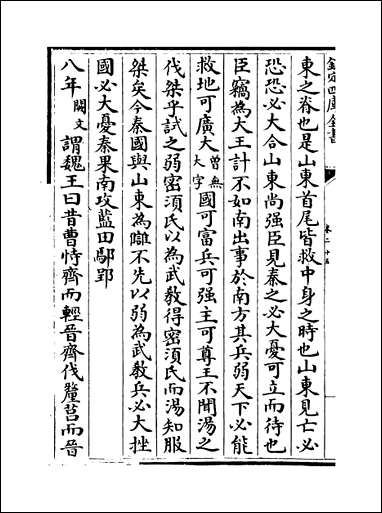 欽定四庫全書
東之脊也是山東首尾皆救中身之時也山東見亡必
恐恐必大合山東尚强臣見秦之必大憂可立而待也
臣竊為大王計不如南出事於南方其兵弱天下必能
救地可廣大曾無大字國可富兵可强主可尊王不聞湯之
伐桀乎試之弱密湏氏以為武教得密湏氏而湯知服
桀矣今秦國與山東為讎不先以弱為武教兵必大挫
國必大憂秦果南攻藍田鄢郢
八年闕文謂魏王曰昔曹恃齊而輕晉齊伐釐莒而晉